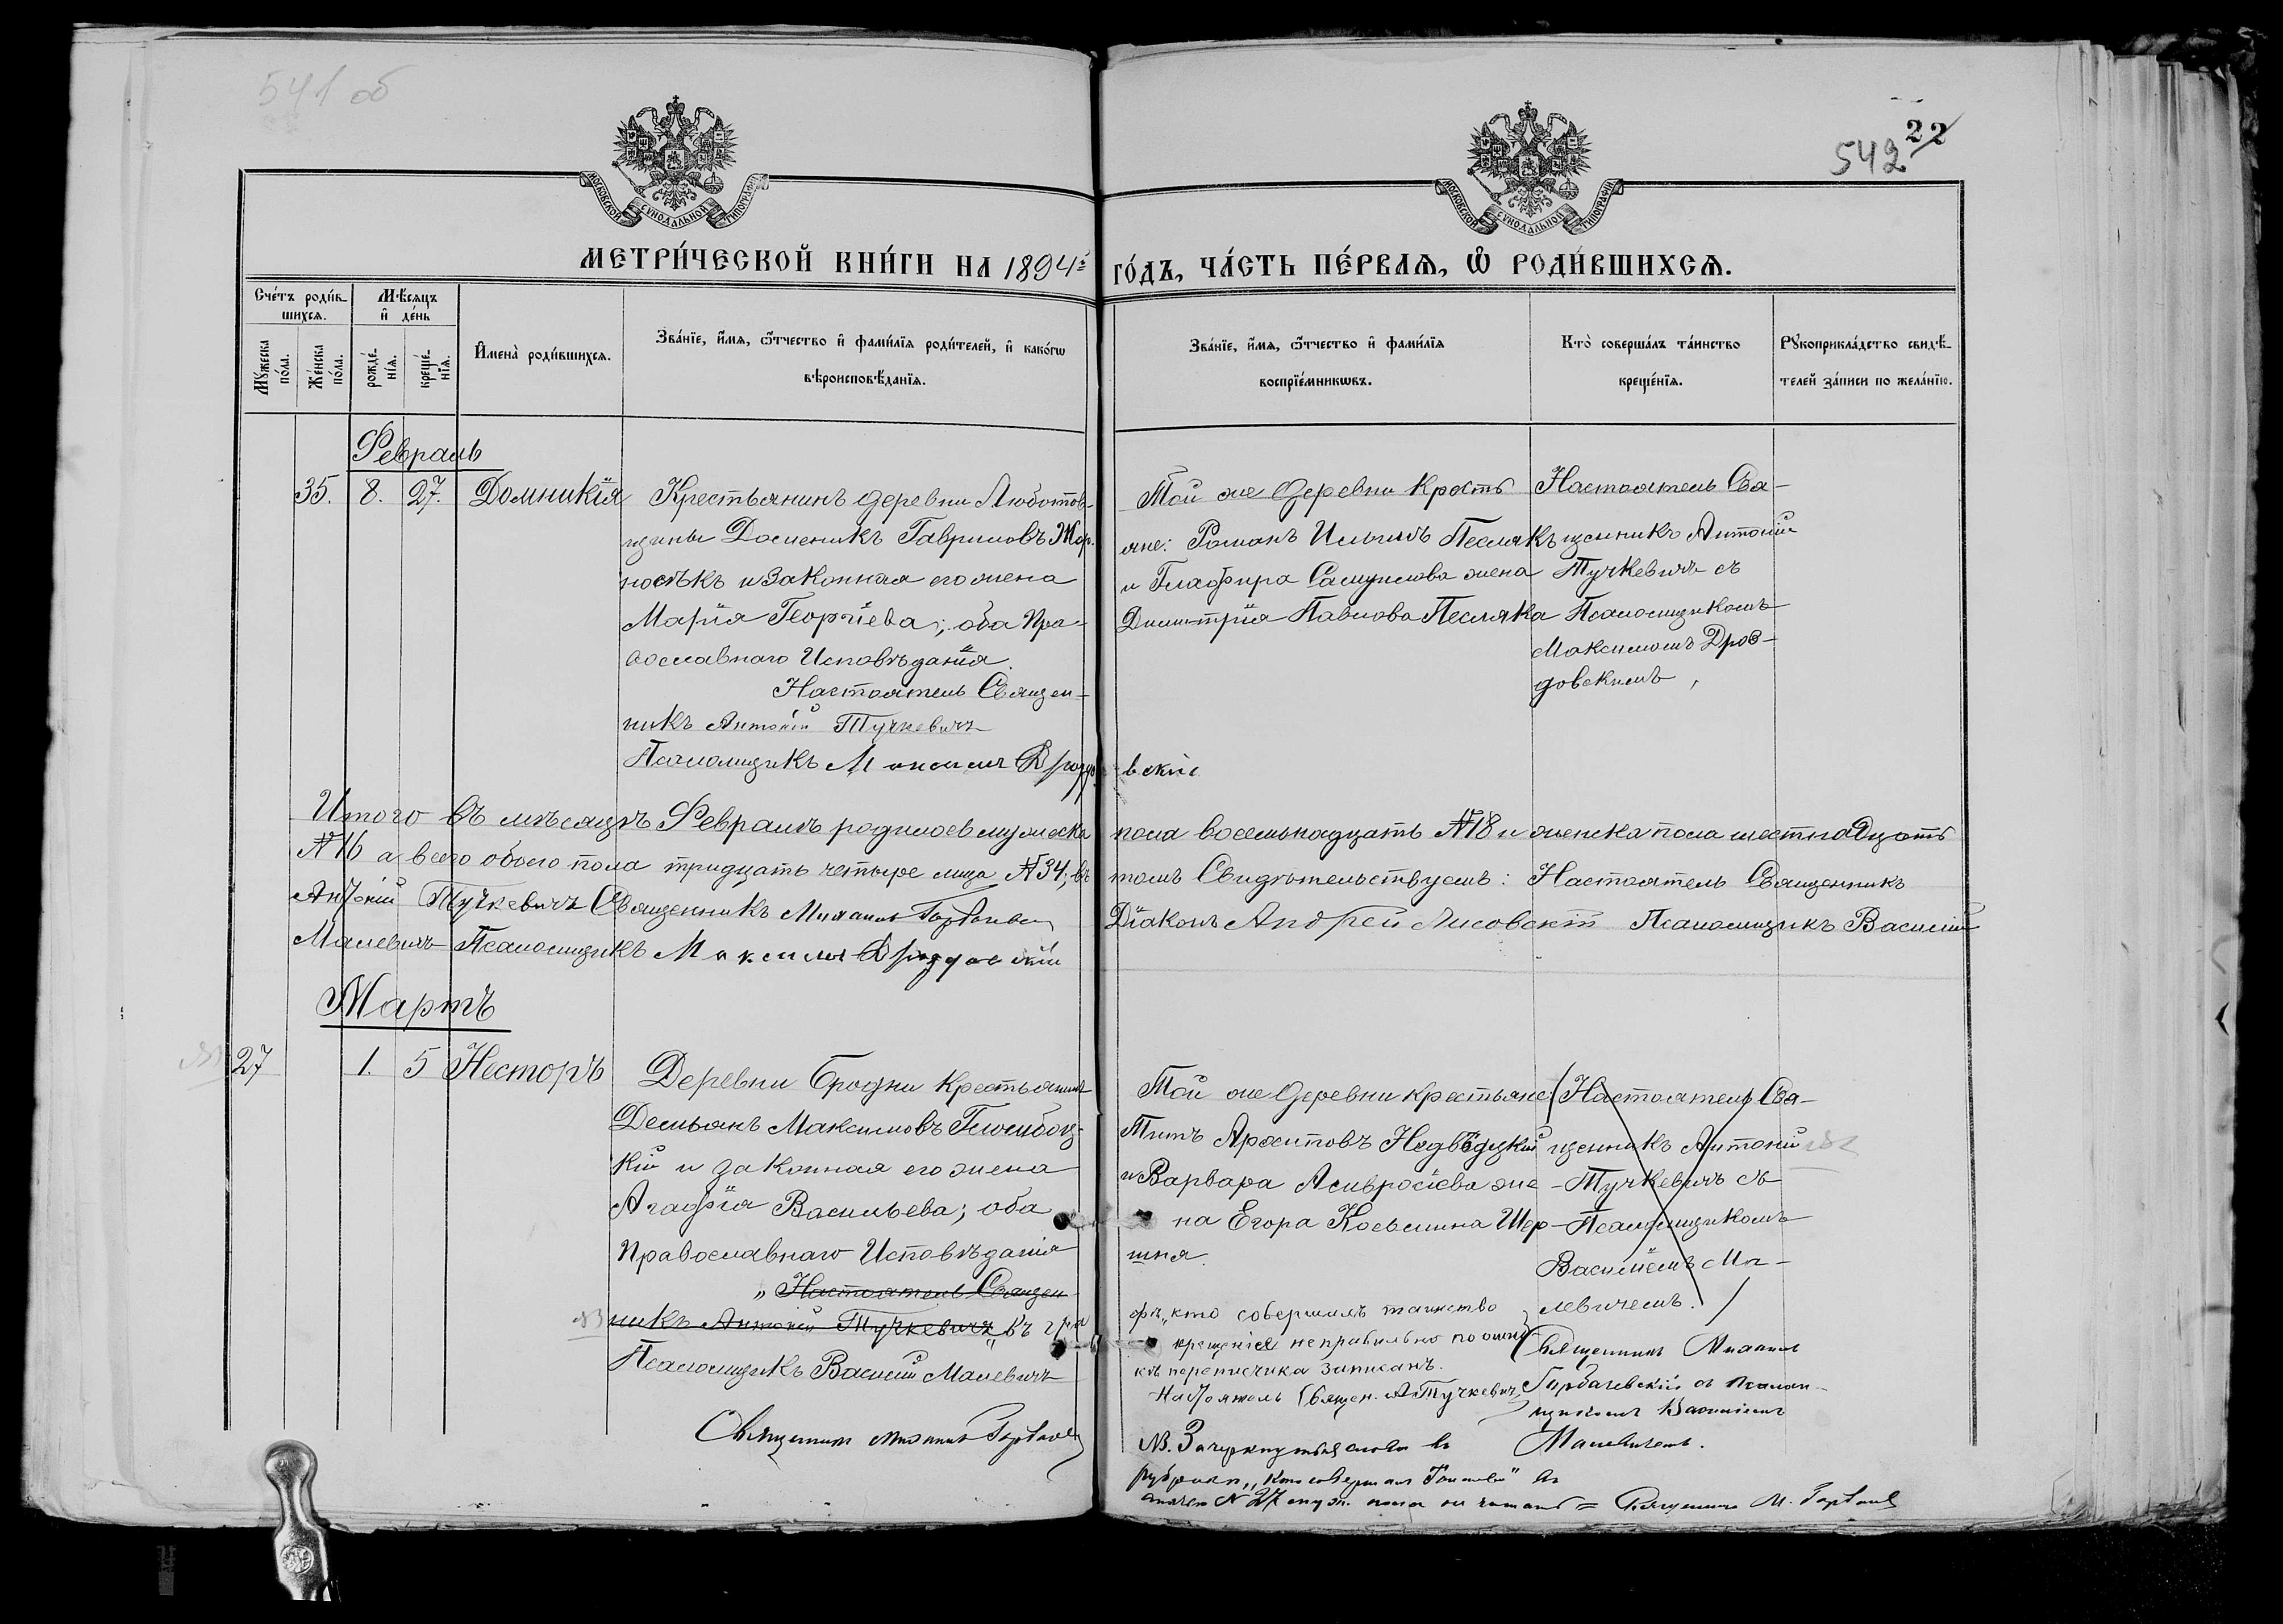 541 об
22
542
МОСКОВСКОЙ СѴНОДАЛЬНОЙ ТИПОГРАФІИ
МОСКОВСКОЙ СѴНОДАЛЬНОЙ ТИПОГРАФІИ
МЕТРИ́ЧЕСКОЙ КНИ́ГИ НА 1894й
ГО́ДЪ, ЧА́СТЬ ПЕ́РВАѦ, Ѡ РОДИ́ВШИХСѦ.
Сче́тъ роди́в-
шихсѧ.
Мѣ́сѧцъ
и҆ де́нь
Мꙋ́жеска
по́ла.
Же́нска
по́ла.
рожде́-
нїѧ.
креще́-
нїѧ.
И҆мена̀ роди́вшихсѧ.
Зва́нїе, и҆́мѧ, ѻ҆́тчество и҆ фами́лїѧ роди́телей, и҆ како́гѡ
вѣроисповѣ́данїѧ.
Зва́нїе, и҆́мѧ, ѻ҆́тчество и҆ фами́лїѧ
воспрїе́мникѡвъ.
Кто̀ соверша́лъ та́инство
креще́нїѧ.
Рꙋкоприкла́дство свидѣ́-
телей за́писи по жела́нїю.
Февраль
35. 8. 27. Домникія
Крестьянинъ деревни Люботов-
щины Доменикъ Гавриловъ Жор-
носѣкъ и законная его жена
Марія Георгіева; оба Пра-
вославнаго Исповѣданія.
Настоятель Священ-
никъ Антоній Тучкевичъ
Псаломщикъ Максимъ Дроздо-
вскій
Той же деревни Кресть
яне: Романъ Ильинъ Песляк
и Глафира Самуилова жена
Димитрія Павлова Песляка
Настоятель Свя-
щенникъ Антоній
Тучкевичъ съ
Псаломщикомъ
Максимомъ Дроз-
довскимъ,
Итого въ мѣсяцѣ Февралѣ родилось мужеска
пола восемьнадцать №18 и женска пола шестнадцать
№16 а всего обоего пола тридцать четыре лица №34; въ
томъ Свидѣтельствуемъ: Настоятель Священникъ
Антоній Тучкевичъ Священникъ Михаилъ Горбачевскій
Діаконъ Андрей Лисовскій Псаломщикъ Василій
Малевичъ Псаломщикъ Максимъ Дроздовскій
Мартъ
27 1. 5 Несторъ
Деревни Бродни Крестьянинъ
Демьянъ Максимовъ
кій и законная его жена
Агафія Васильева; оба
Православнаго Исповѣданія
„Настоятель Священ-
никъ Антоній Тучкевичъ„ въ гра
Псаломщикъ Василій Малевичъ
Священникъ Михаилъ Горбачев
Той же деревни крестьяне
Титъ Архиповъ
и Варвара Амвросіева же
на Егора Косьмина Шер-
шня.
фѣ „кто совершалъ таинство
крещенія неправильно по ошиб-
кѣ переписчика записанъ.
Настоятель Священ. А Тучкевичъ
Настоятель Свя-
щенникъ Антоній
Тучкевичъ съ
Псаломщикомъ
Василіемъ Ма-
левичемъ.
Священникъ Михаилъ
Горбачевскій съ псалом-
щикомъ Василіемъ
Малевичемъ.
NB. Зачеркнутыя слова въ
рубрикѣ „Кто совершалъ Таинство" въ
№ 27 муж. пола не читать = Священникъ М. Горбачев